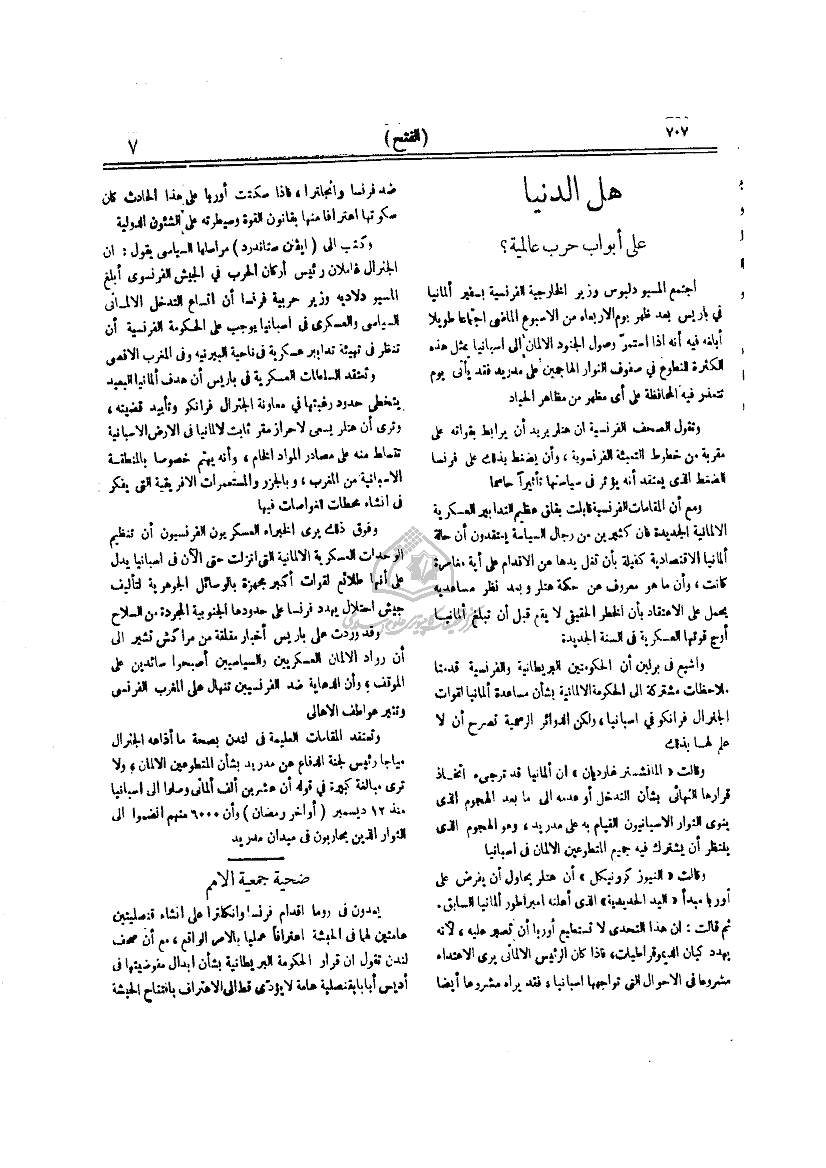 ٧٠٧
(الفتح)
٧
هل الدنيا
على أبواب حرب عالمية؟
اجتمع المسيو دلبوس وزير الخارجية الفرنسية بسفير ألمانيا
فى باريس بعد ظهر يوم الاربعاء من الاسبوع الماضى اجتماعا طويلا
أبلغه فيه أنه اذا استمرّ وصول الجنود الالمان الى اسبانيا بمثل هذه
الكثرة للتطوع فى صفوف الثوار الهاجمين على مدريد فقد يأتى يوم
تتعذر فيه المحافظة على أى مظهر من مظاهر الحياد
وتقول الصحف الفرنسية ان هتلر يريد أن يرابط بقواته على
مقربة من خطوط التعبئة الفرنسوية، وأن يضغط بذلك على فرنسا
الضغط الذى يعتقد أنه يؤثر فى سياستها تأثيراً حاسما
ومع أن المقامات الفرنسية قابلت بقلق عظيم التدابير العسكرية
الالمانية الجديدة فان كثيرين من رجال السياسة يعتقدون أن حالة
ألمانيا الاقتصادية كفيلة بأن تغل يدها عن الاقدام على أية مغامرة
كانت، وأن ما هو معروف عن حكمة هتلر وبعد نظر مساعديه
يحمل على الاعتقاد بأن الخطر الحقيقى لا يقم قبل أن تبلغ ألمانيا
أوج قوتها العسكرية فى السنة الجديدة
واشيع فى برلين أن الحكومتين البريطانية والفرنسية قدمتا
ملاحظات مشتركة الى الحكومة الالمانية بشأن مساعدة ألمانيا لقوات
الجنرال فرانكو فى اسبانيا، ولكن الدوائر الرسمية تصرح أن لا
علم لهما بذلك
وقالت « المانشستر غارديان » ان ألمانيا قد ترجىء اتخاذ
قرارها النهائى بشأن التدخل أو عدمه الى ما بعد الهجوم الذى
ينوى الثوار الاسبانيون القيام به على مدريد، وهو الهجوم الذى
ينتظر أن يشترك فيه جميع المتطوعين الالمان فى اسبانيا
وقالت « النيوز كرونيكل » أن هتلر يحاول أن يفرض على
أوربا مبدأ « اليد الحديدية » الذى أعلنه امبراطور ألمانيا السابق.
ثم قالت: ان هذا التحدى لا تستطيع أوربا أن تصبر عليه، لأنه
يهدد كيان الديموقراطيات، فاذا كان الرئيس الالمانى يرى الاعتداء
مشروعا فى الاحوال التى تواجهها اسبانيا، فقد يراه مشروعا أيضا
ضد فرنسا وانجلترا، فاذا سكتت أوربا على هذا الحادث كان
سكوتها اعترافا منها بقانون القوة وسيطرته على الشئون الدولية
وكتب الى (ايفنن ستاندرد) مراسلها السياسى يقول: ان
الجنرال غاملان رئيس أركان الحرب فى الجيش الفرنسوى أبلغ
المسيو دلاديه وزير حربية فرنسا أن اتساع التدخل الالمانى
السياسى والعسكرى فى اسبانيا يوجب على الحكومة الفرنسية أن
تنظر فى تهيئة تدابير عسكرية فى ناحية البيرنيه وفى المغرب الاقصى
وتعتقد السلطات العسكرية فى باريس أن هدف ألمانيا البعيد
يتخطى حدود رغبتها فى معاونة الجنرال فرانكو وتأييد قضيته،
وترى أن هتلر يسعى لاحراز مقر ثابت لالمانيا فى الارض الاسبانية
تتسلط منه على مصادر المواد الخام، وأنه يهتم خصوصا بالمنطقة
الاسبانية من المغرب، وبالجزر والمستعمرات الافريقية التى يفكر
فى انشاء محطات الغواصات فيها
وفوق ذلك يرى الخبراء العسكريون الفرنسيون أن تنظيم
الوحدات العسكرية الالمانية التى انزلت حتى الآن فى اسبانيا يدل
على أنها طلائع لقوات أكبر مجهزة بالوسائل الجوهرية لتأليف
جيش احتلال يهدد فرنسا على حدودها الجنوبية المجردة من السلاح
وقد وردت على باريس أخبار مقلقة من مراكش تشير الى
أن رواد الالمان العسكريين والسياسيين أصبحوا سائدين على
الموقف، وأن الدعاية ضد الفرنسيين تنهال على المغرب الفرنسى
وتثير عواطف الاهالى
وتعتقد المقامات العليمة فى لندن بصحة ما أذاعه الجنرال
مياجا رئيس لجنة الدفاع عن مدريد بشأن المتطوعين الالمان، ولا
ترى مبالغة كبيرة فى قوله أن عشرين ألف ألمانى وصلوا الى اسبانيا
منذ ١٢ ديسمبر (أواخر رمضان) وأن ٦٠٠٠ منهم انضموا الى
الثوار الذين يحاربون فى ميدان مدريد
ضحية جمعية الامم
يعدون فى روما اقدام فرنسا وانكلترا على انشاء قنصليتين
عامتين لهما فى الحبشة اعترافاً عمليا بالامر الواقع، مع أن صحف
لندن تقول ان قرار الحكومة البريطانية بشأن ابدال مفوضيتها فى
أديس أبابا بقنصلية عامة لا يؤدّى قط الى الاعتراف بافتتاح الحبشة